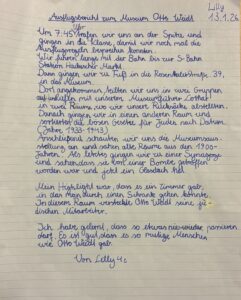 Lilly
13.1.26
Ausflugsbericht zum Museum Otto Weidt
Um 7:45 Uhr trafen wir uns an der Spitze und
gingen in die Klasse, damit wir noch mal die
Ausflugsregeln besprechen konnten.
Wir fuhren lange mit der Bahn bis zur S-Bahn
Station Hackescher Markt.
Dann gingen wir zu Fuß in die Rosenthalerstraße 39,
in das Museum.
Dort angekommen teilten wir uns in zwei Gruppen
auf und mit unserem Museumsführer
in zwei Räume, wo wir unsere Rucksäcke abstellten.
Danach gingen wir in einen anderen Raum und
sortierten die bösen Gesetze für Juden nach Datum.
(Früher, 1933-1943)
Anschließend schauten wir uns die Museumsaus-
stellung an und sahen alte Räume aus den 1900-
Jahren. Als letztes gingen wir zu einer Synagoge
und sahen dass sie von einer Bombe getroffen
worden war und jetzt ein Glasdach hat.
Mein Highlight war, dass es ein Zimmer gab,
in das man durch einen Schrank gehen konnte.
In diesem Raum versteckte Otto Weidt seine jü-
dischen Mitarbeiter.
Ich habe gelernt, dass so etwas nie wieder passieren
darf. Es ist gut dass es so mutige Menschen
wie Otto Weidt gab.
Von Lilly 4c